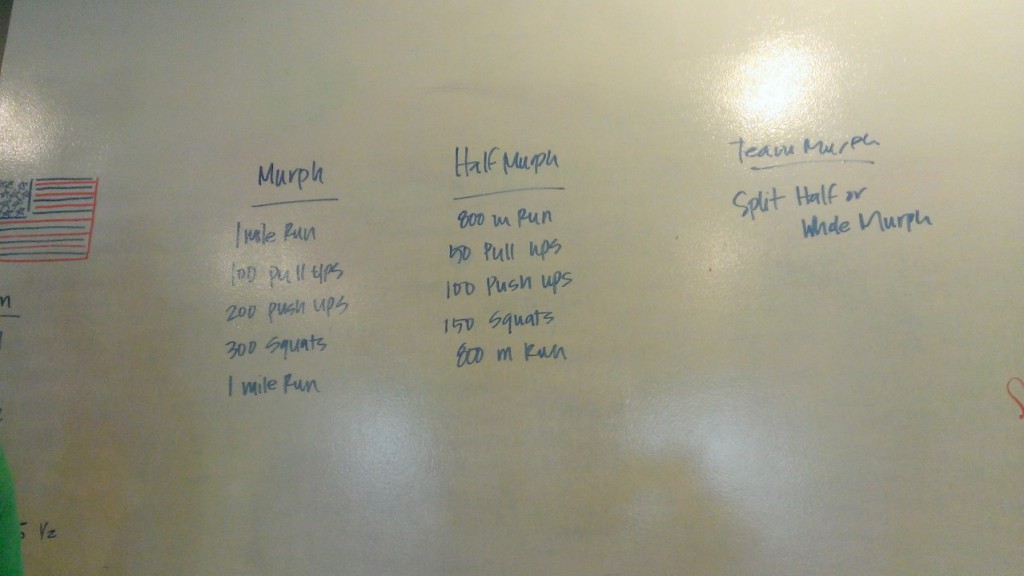 Murph
1 mile Run
100 Pull Ups
200 Push Ups
300 Squats
1 mile Run
Half Murph
800 m Run
50 Pull Ups
100 Push Ups
150 Squats
800 m Run
Team Murph
Split Half or
Whole Murph
1/2